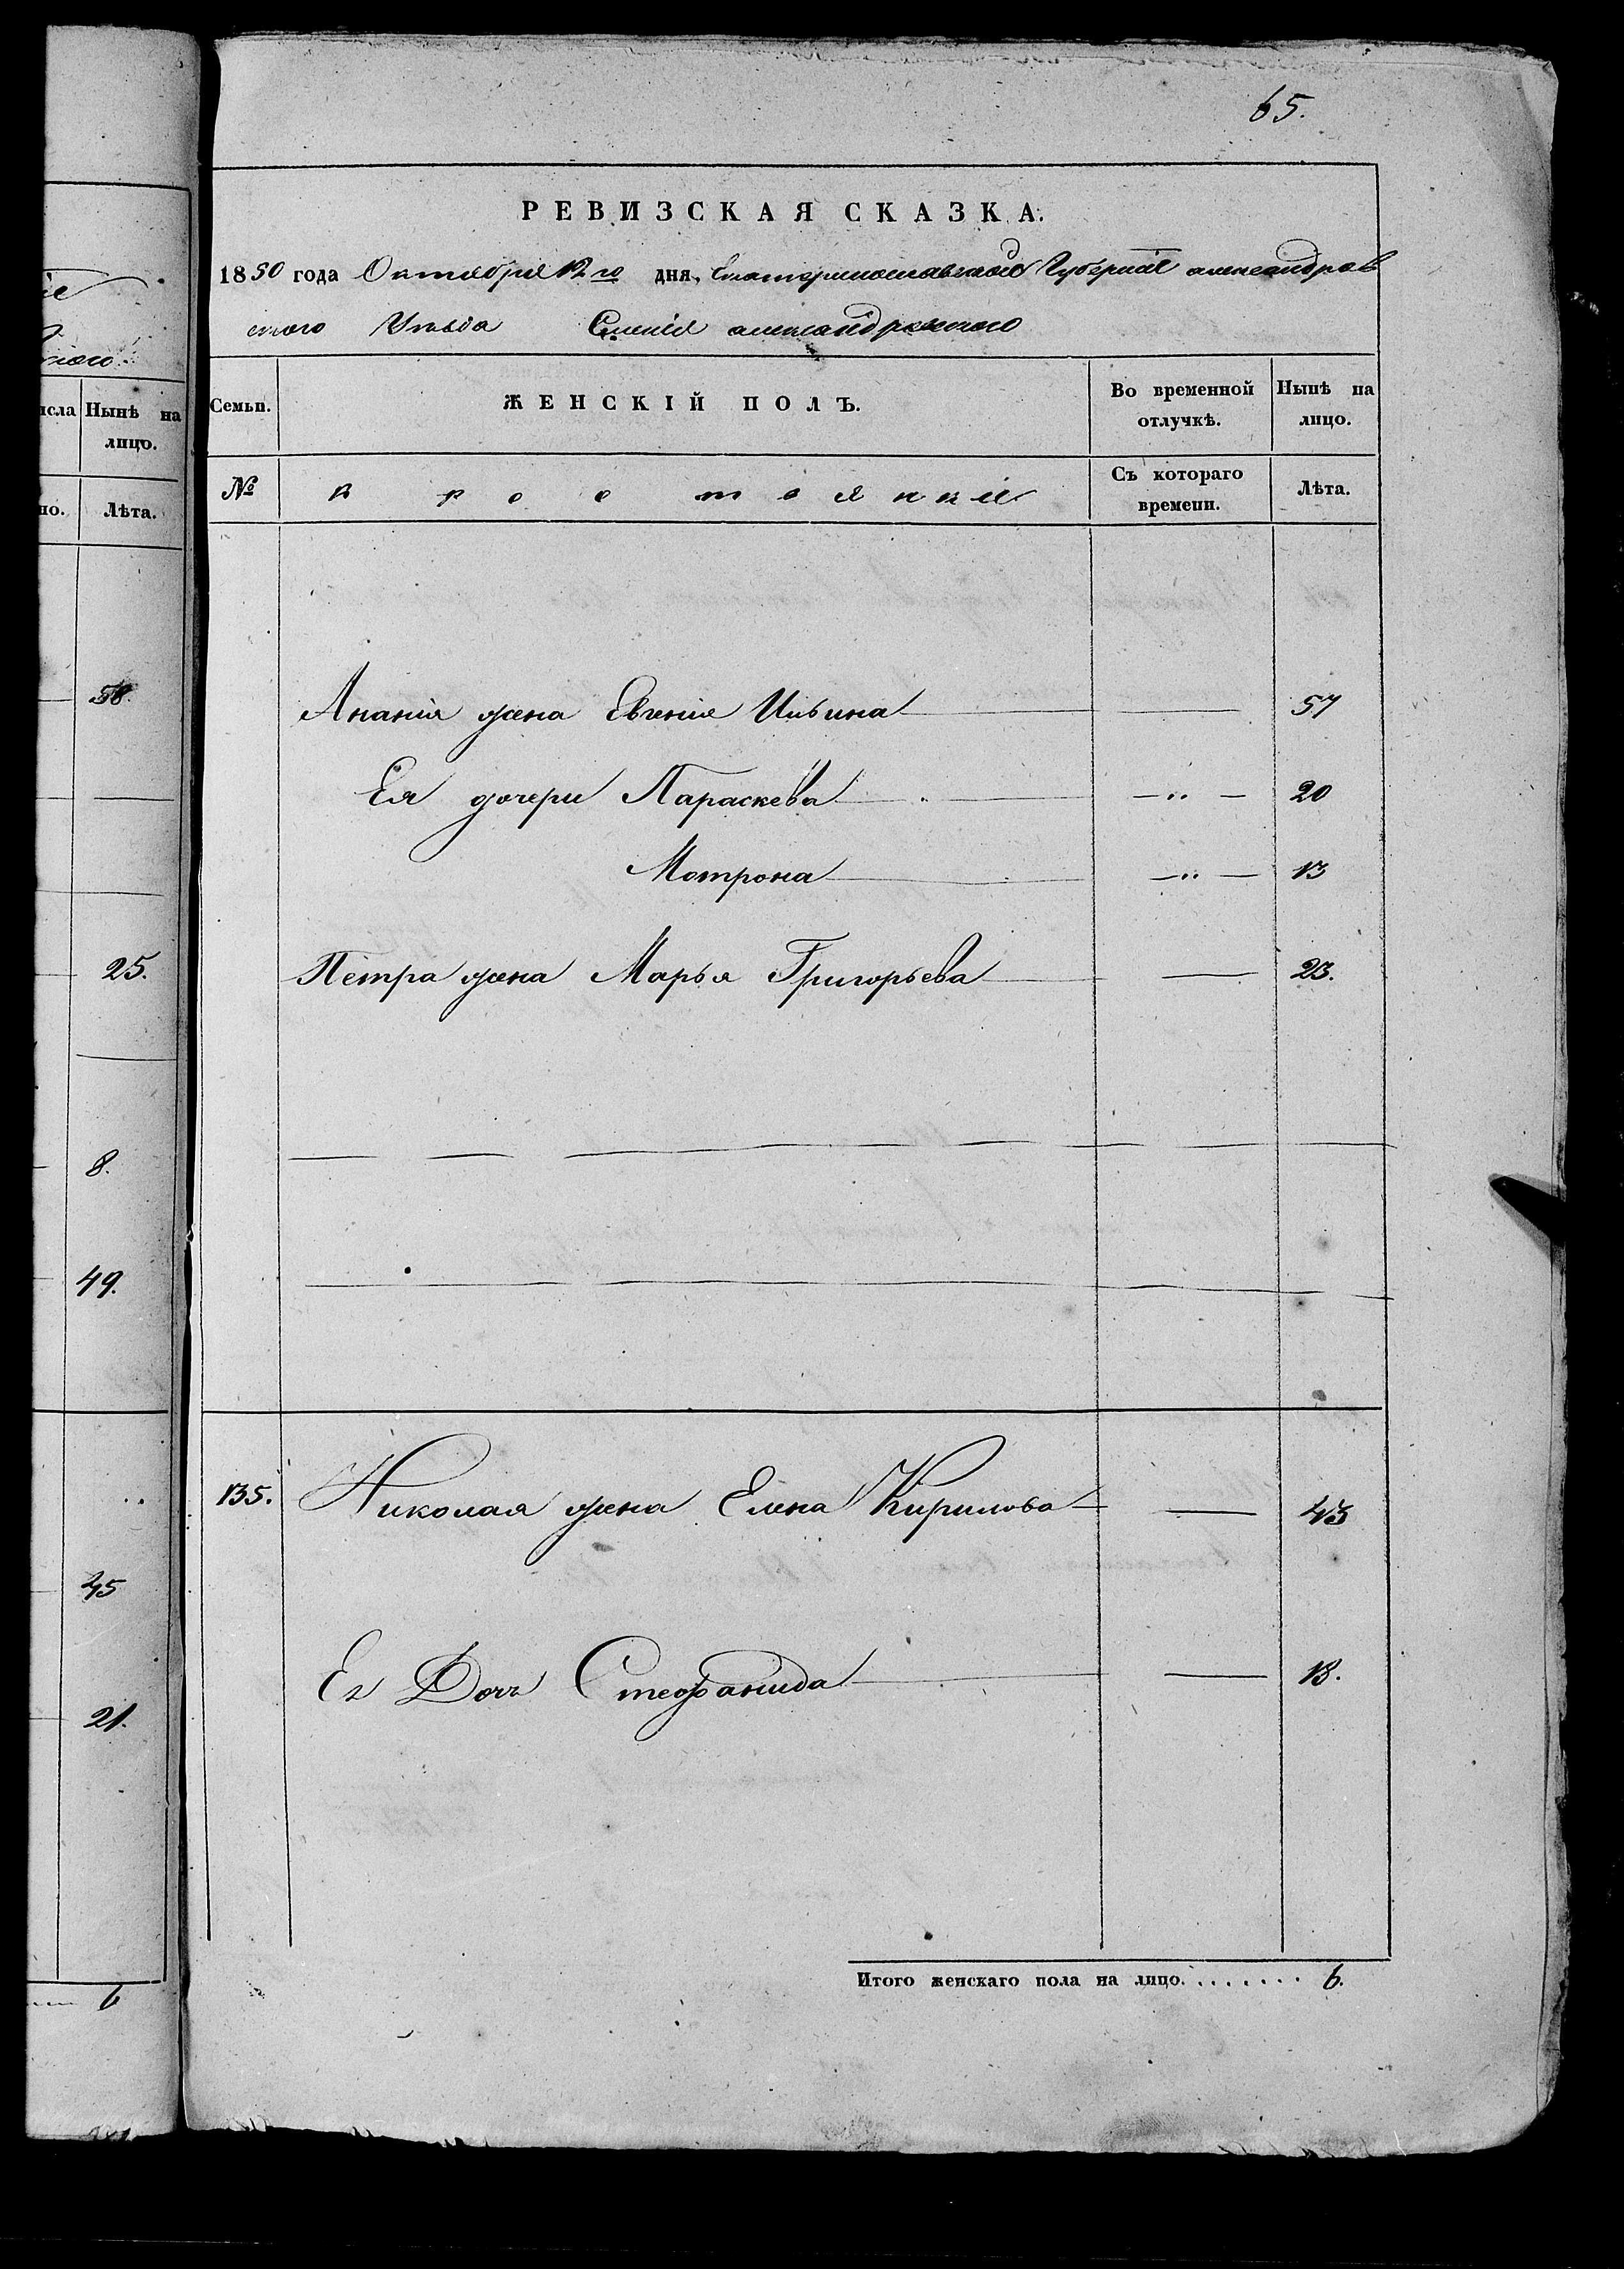 65.
РЕВИЗСКАЯ СКАЗКА.
1850 года Октября 12го дня, Екатеринославской Губерніи александров
ского Уѣзда Селенія александровского
исла Нынѣ на лицо.
но. Лѣта.
Семьи. ЖЕНСКІЙ ПОЛЪ. Во временной отлучкѣ. Нынѣ на лицо.
№ крестьянкіе Съ котораго времени. Лѣта.
58.
Ананія жена Евгенія Ильина 57
Ея дочери Параскева 20
Мотрона 13
25.
Петра жена Марья Григорьева 23.
8.
49.
135. Николая жена Елена Кирилова 43
45
Ея Дочь Стефанида 18.
21.
Итого женскаго пола на лицо. 6.
6